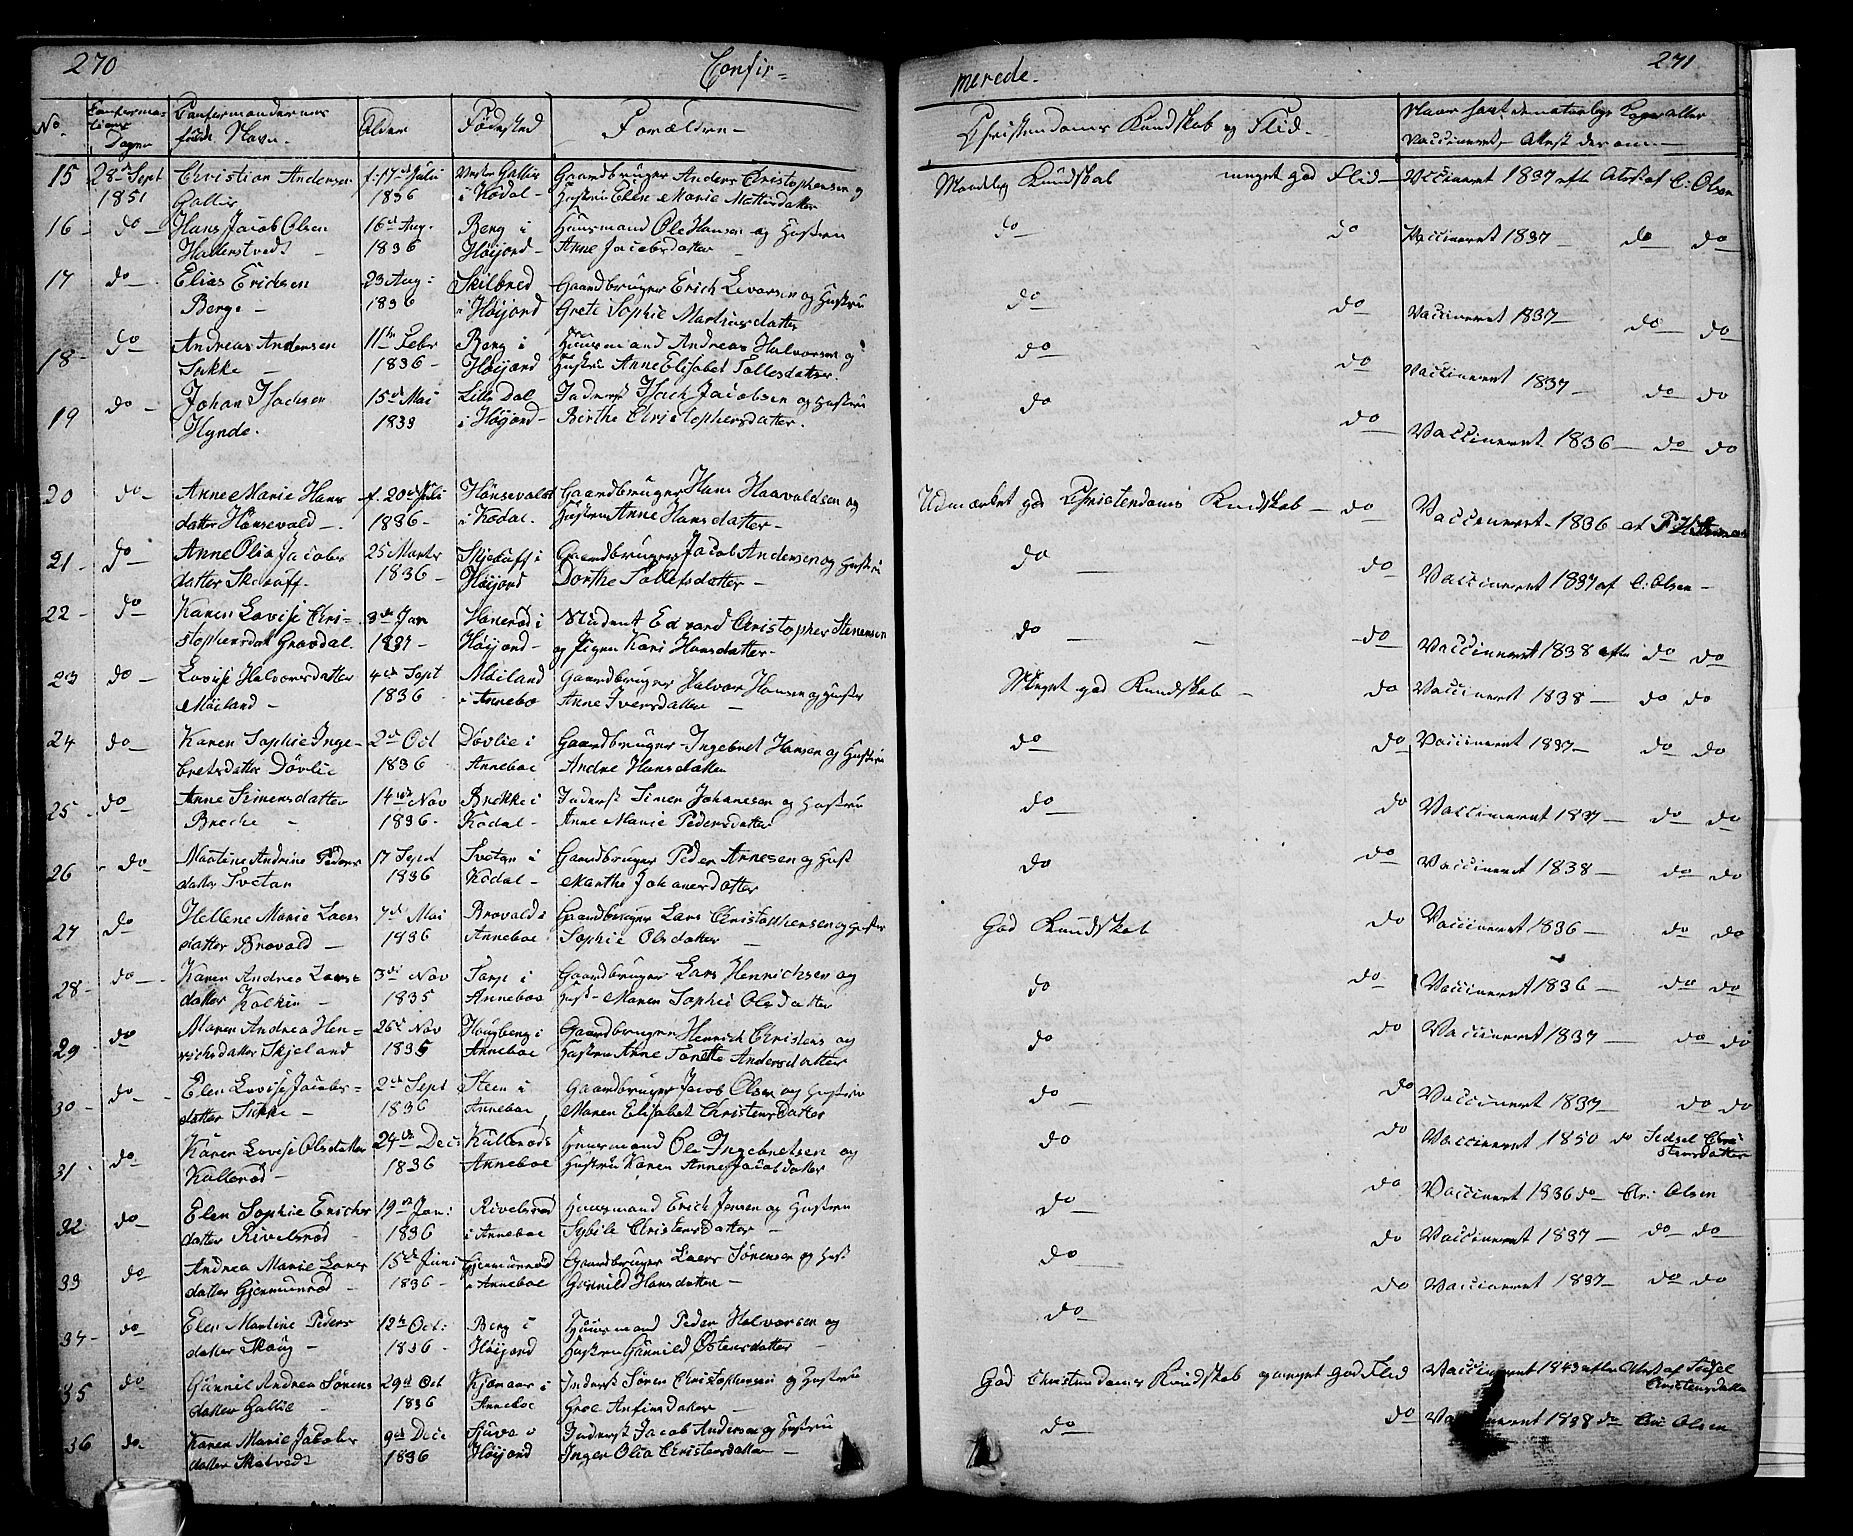 270
Confir=
No.
Confirma-
tions
Dagen
Confirmandernes
fulde Navn.
Alder
Fødested
Forældre
15 28de Sept Christian Andersen f. 17de Juli Vestre Gallis Gaardbruger Anders Christophersen og
1851 Gallis 1836 i Kodal - Hustru Elen Marie Mathisdatter
16 - do - Hans Jacob Olsen 16de Aug. Berg i Huusmand Ole Hansen og Hustru
Hallenstvedt 1836 Høijord - Anne Jacobsdatter
17 do - Elias Erichsen 23 Aug: Skilbred Gaardbruger Erich Evorsen og Hustru
Berge - 1836 i Høijord Grete Sophie Martinsdatter
18 - do Andreas Andersen 11te Febr Berg i Huusmand Andreas Halvorsen og
Sukke - 1836 - Høijord Hustru Anne Elisabet Tollesdatter.
19 do - Johan Isachsen 15de Mai Lille Dal Inderst Isach Jacobsen og Hustru
Hynde. 1833 i Høijord - Birthe Christophersdatter.
20 do - Anne Marie Hans f. 20de Juli Hønsevald Gaardbruger Hans Haavaldsen og
datter Hønsevald - 1836 - i Kodal. Hustru Anne Hansdatter -
21 - do - Anne Olia Jacobs 25 Marts Skjelaaff i Gaardbruger Jacob Andersen og Hustru
datter Skelaaff. 1836 - Høijord Dorthe Tollefsdatter -
22 - do Karen Lovise Chri- 3die Jan Hanerød i Student Edvard Christopher Stenersen
stophersdat Gravdal. 1837 - Høijord - og Pigen Kari Hansdatter -
23 do - Lovise Halvorsdatter 4de Sept Møiland Gaardbruger Halvor Hansen og Hustr
Møiland - 1836 i Anneboe Anne Iversdatter -
24 do - Karen Sophie Inge- 2de Oct Døvlie i Gaardbruger Ingebret Hansen og Hustru
bretsdatter Døvlie 1836 Anneboe Andrea Hansdatter
25 do Anne Simensdatter 14de Nov Brekke i Inderst Simen Johansen og Hustru
Breche - 1836 - Kodal - Anne Marie Pedersdatter
26 do Martine Andrine Peders 17 Sept Svetan i Gaardbruger Peder Arnesen og Hust
datter Svetan 1836 Kodal - Marthe Johanesdatter
27 do Hellene Marie Laers 7de Mai Brovald i Gaardbruger Lars Christophersen og Hustru
datter Brovald - 1836 Anneboe Sophie Olsdatter
28 - do - Karen Andrea Laers= 3die Nov Tarp i Gaardbruger Lars Henrichsen og
datter - 1835 Anneboe Hust - Maren Sophie Olsdatter
29 do Maren Andrea Hen= 26de Nov Hougberg i Gaardbruger Henrich Christens og
richsdatter Skjeland 1835 Anneboe Hustru Anne Torette Andersdatter
30 do - Elen Lovise Jacobs= 2de Sept Steen i Gaardbruger Jacob Olsen og Hustru
datter Sukke - 1836 Anneboe Maren Elisabet Christensdatter
31 do Karen Lovise Olsdatter 24de Dec: Kullerøds Huusmand Ole Ingebretsen og
Kullerød - 1836 Anneboe Hustru Karen Anne Jacobsdatter
32 do - Elen Sophie Erichs 19de Jan: Rivelsrød Huusmand Erich Jensen og Hustru
datter Rivelsrød - 1836 i Anneboe Sybile Christensdatter -
33 do Andrea Marie Laers 15de Juni Gjermunrød Gaardbruger Laers Sørensen og Hust
datter Gjermunrød - 1836 - i Anneboe Gunnild Hansdatter -
34 - do Elen Martine Peders 12te Oct: Berg i Huusmand Peder Halvorsen og
datter Skoug - 1836 - Høijord Hustru Gunnild Østensdatter
35 do Gunnil Andrea Sørens 29de Oct Kjønaas i Inderst Søren Christophersen og Hustru
datter Gallie - 1836 Anneboe Groe Anfinsdatter -
36 do - Karen Marie Jacobs 9de Dec Inderst Jacob Andersen og Hustru
datter Skatvedt 1836 Høijord Inger Olia Christensdatter -
merede.
271
Christendoms Kundskab og Flid.
Naar samt de naturlige Kopper eller
Vaccineret, Attest derom
Maadelig Kundskab meget god Flid - Vaccineret 1837 efter Attest af C: Olsen
do do Vaccineret 1837 - do do
do do Vaccineret 1837 - do do
do do Vaccineret 1837 - do do
do do Vaccineret 1836 - do do
Udmærket god Christendoms Kundskab - do Vaccineret 1836 af
do - do Vaccineret 1837 af C: Olsen -
do - - do Vaccineret 1838 efter do do
Meget god Kundskab - do Vaccineret 1838 - do do
do do Vaccineret 1837 - do do
do do Vaccineret 1837 - do do
do do Vaccineret 1838 - do do
God Kundskab do Vaccineret 1836 - do do
do do Vaccineret 1836 - do do
do do Vaccineret 1837 - do do
do do Vaccineret 1837 - do do
do do Vaccineret 1850 do Sidsel Chri
stensdatter
do do Vaccineret 1836 do Chr: Olsen
do do Vaccineret 1837 - do do
do do Vaccineret 1837 - do do
God Christendoms Kundskab og meget God Flid Vaccineret 1843 efter Attest af Sidsel
Christensdatter
do do Vaccineret 1838 do Chr Olsen